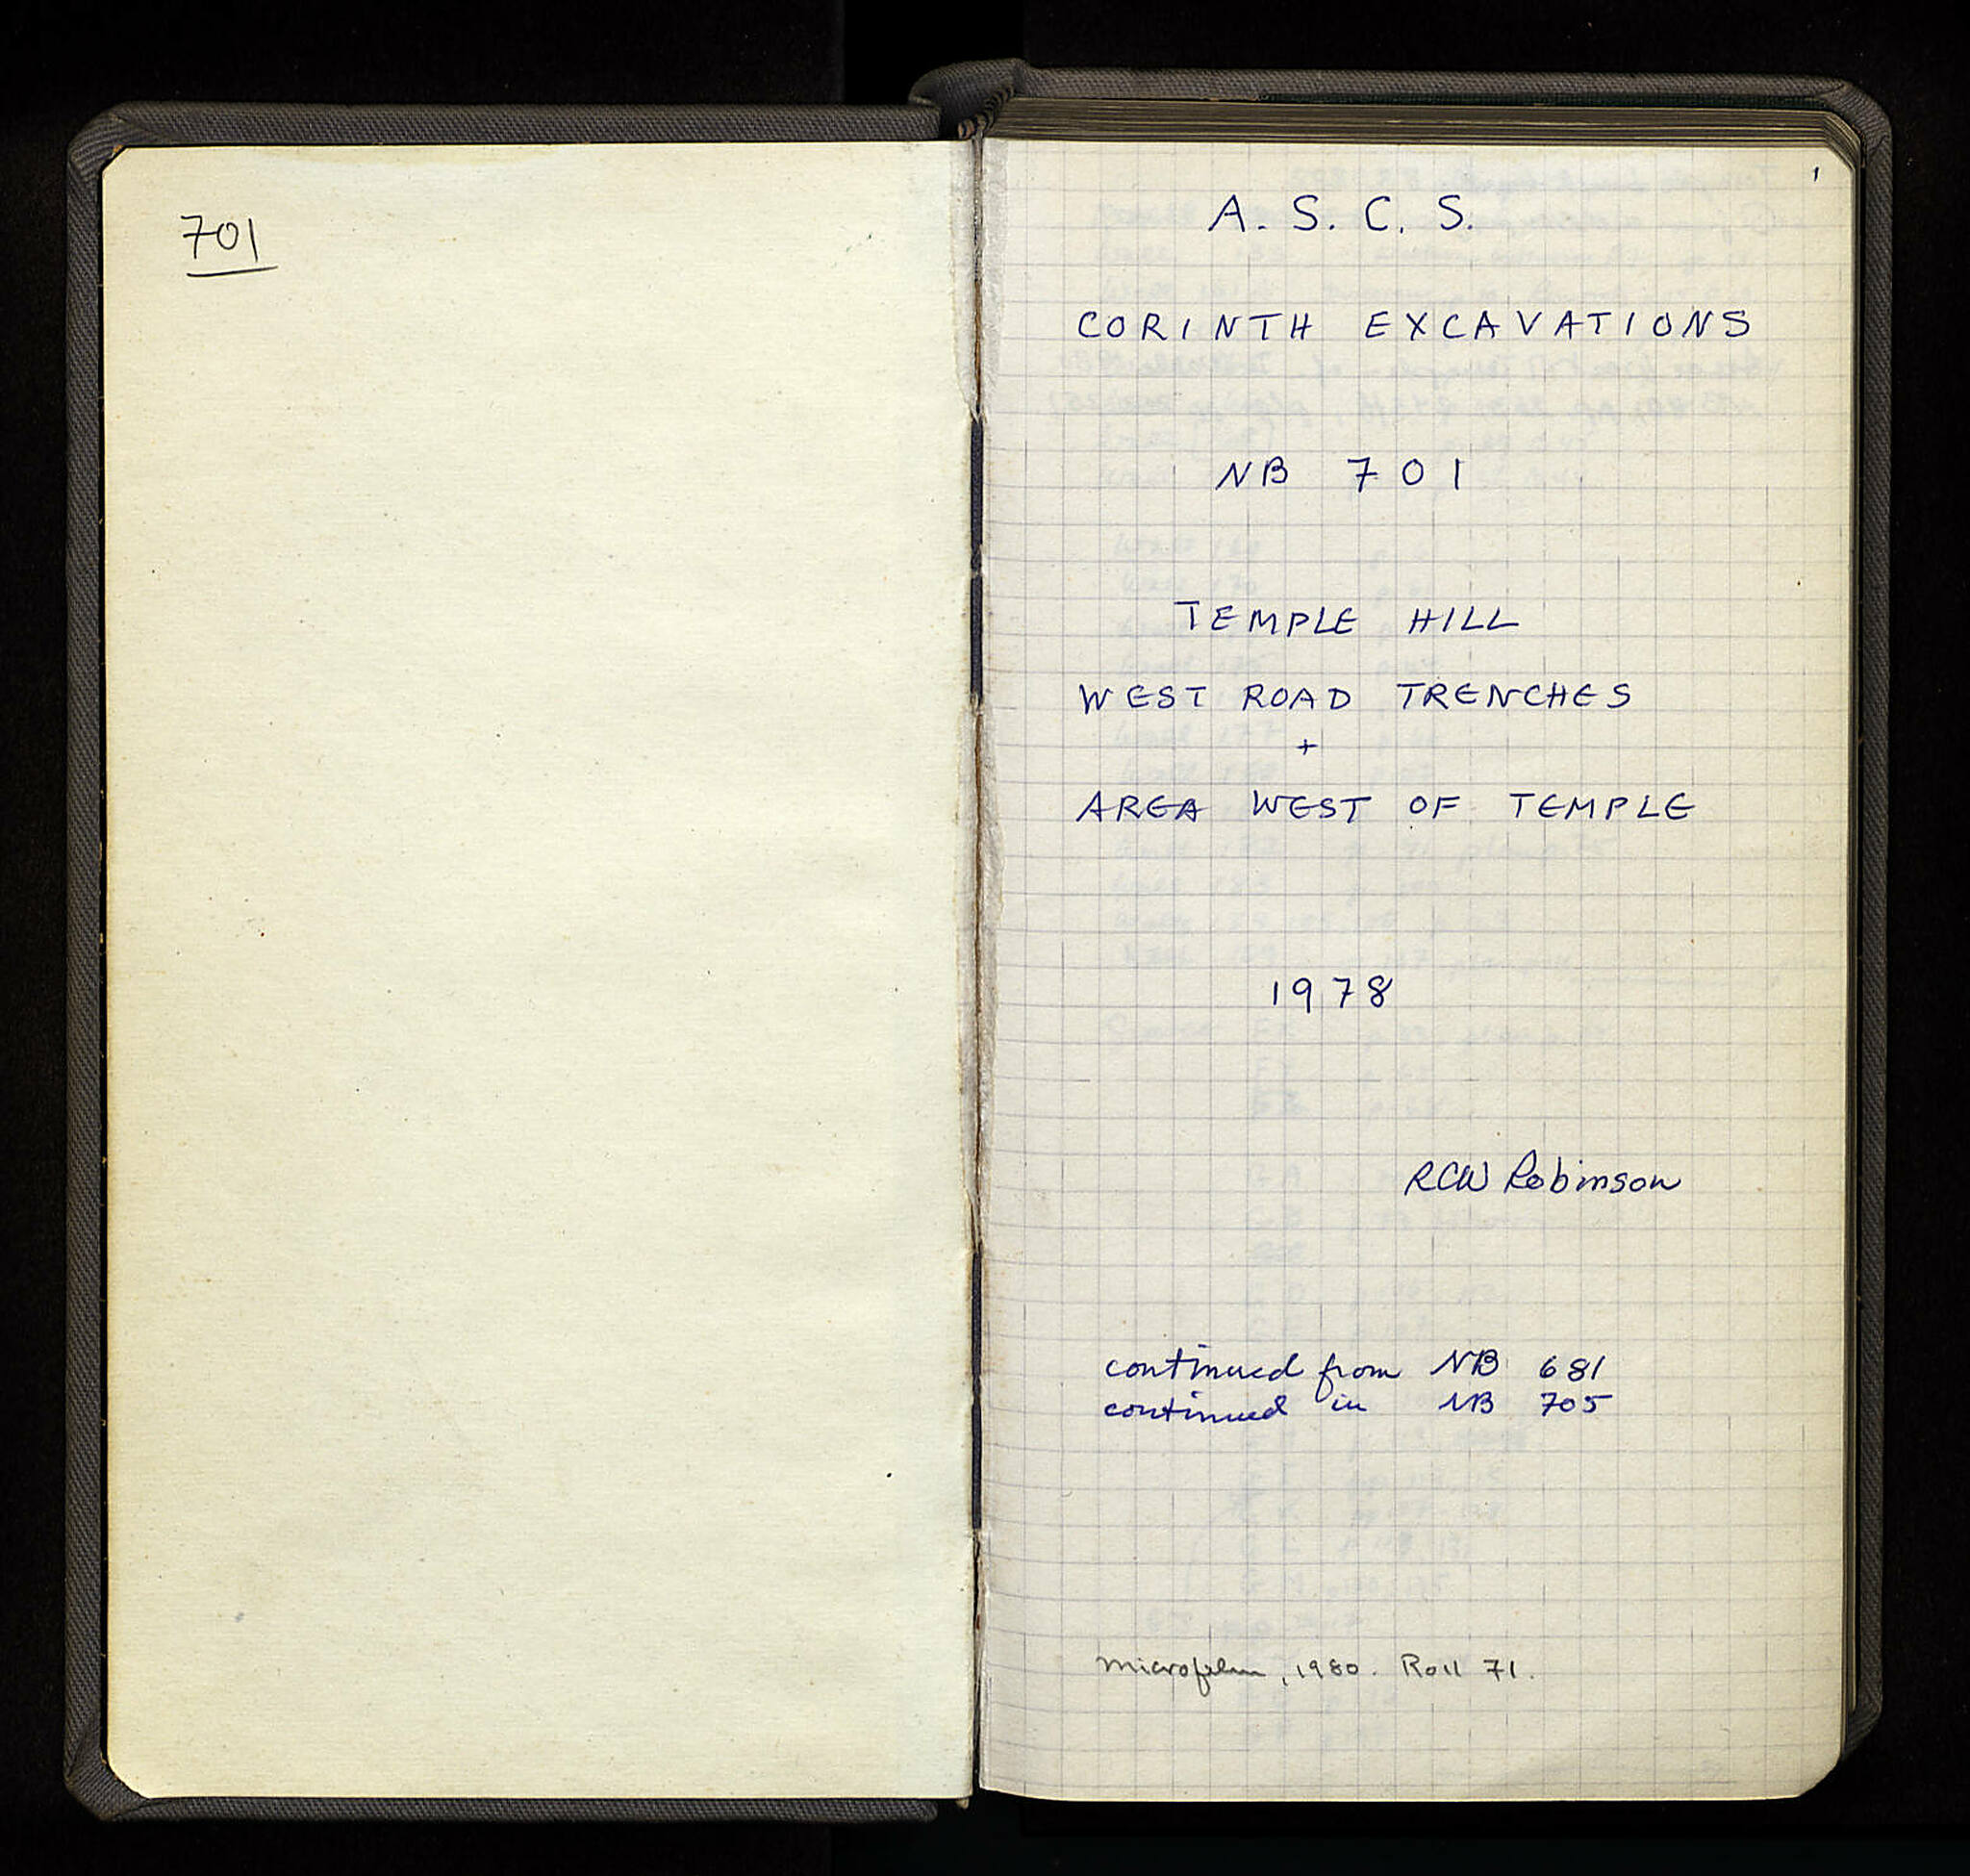 701
1
A. S. C. S.
CORINTH EXCAVATIONS
NB 701
TEMPLE HILL
WEST ROAD TRENCHES
+
AREA WEST OF TEMPLE
1978
RCW Robinson
continued from NB 681
continued in NB 705
Microfilm, 1980. Roll 71.